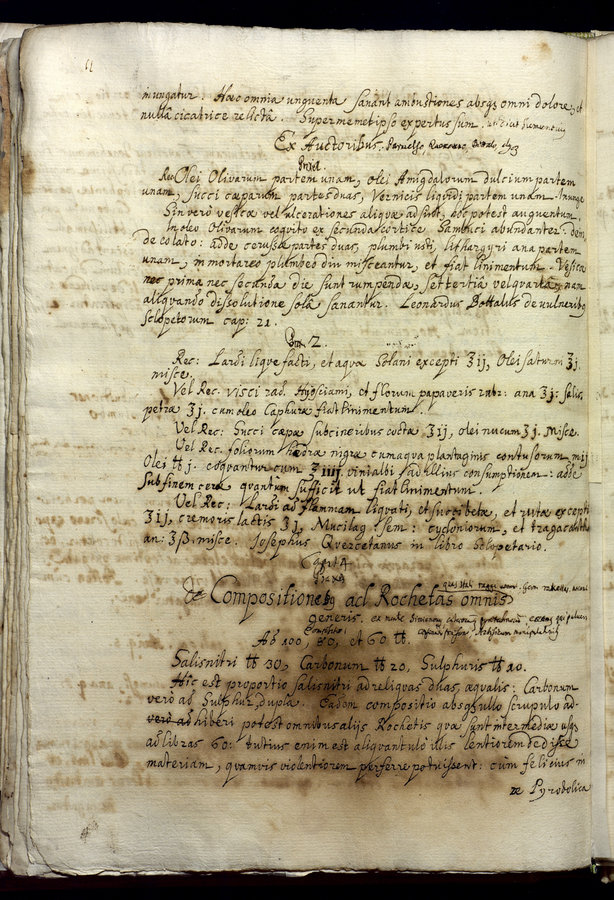 mungatur. Hæc omnia unguenta sanant ambustiones absq3 omni dolore, et
nulla cicatrice relictâ. Supermemetipso expertus sum.
Ex Auctoribus.
Rec Olei Olivarum partem unam, olei Amigdalorum dulcium partem
unam, succi cæparum partes duas, Vernicis liquidi partem unam.
Sin verò vesicæ vel ulcerationes aliquæ adsint, hoc potest augmentum.
In oleo Olivarum coquito ex secunda cortice Sambuci abundanter:
de colato: adde cerussæ partes duas, plumbi usti, lithargyri ana partem
unam, in mortareo plumbeo diu misceantur, et fiat linimentum. Vesicæ
nec prima nec secunda die sunt rumpendæ, sed tertia vel quarta, nam
aliquando dissolutione solâ sanantur. Leonardus Bottalus de vulneribq
sclopetorum cap: 21.
2.
Rec: Lardi liquefacti, et aquæ Solani excepti ʒij, Olei saturni ʒj.
misce.
Vel Rec. Visci rad. Hyosciami, et florum papaveris rubr: ana ʒj: salis
petræ ʒj. cum oleo Caphuræ fiat linimentum.
Vel Rec: Succi cæpæ sub cineribus coctæ ʒij, olei nucum ʒj. Misce.
Vel Rec foliorum hedræ nigræ cum aqua plantaginis contusorum mij
Olei ℔ j. coquantur cum ʒ iiij. vini albi ad illius consumptionem: adde
sub finem ceræ quantum sufficit ut fiat linimentum.
Vel Rec: Lardi ad flammam liquati, et succi betæ, et rutæ excepti
ʒij, cremoris lactis ʒj, Mucilag sem: cydoniorum, et tragacanthæ
an: ʒß. misce. Josephus Quercetanus in libro Sclopetario.
Caput 4
de Compositionebq ad Rochetas omnis
generis.
Ab 100, 80, et 60 ℔.
Salisnitri ℔ 30, Carbonum ℔ 20, Sulphuris ℔ 10.
Hic est proportio salisnitri ad reliquas duas, æqualis: Carbonum
verò ad Sulphur, dupla. Eadem compositio absq3 ullo scrupulo ad-
verò ad hiberi potest omnibus alijs Rochetis quæ sunt intermediæ usq3
ad libras 60: tutius enim est aliquantulò illis lentiorem dedisse
materiam, quamvis violentiorem perferre potuissent: cùm felicius in
de Pyrobolica